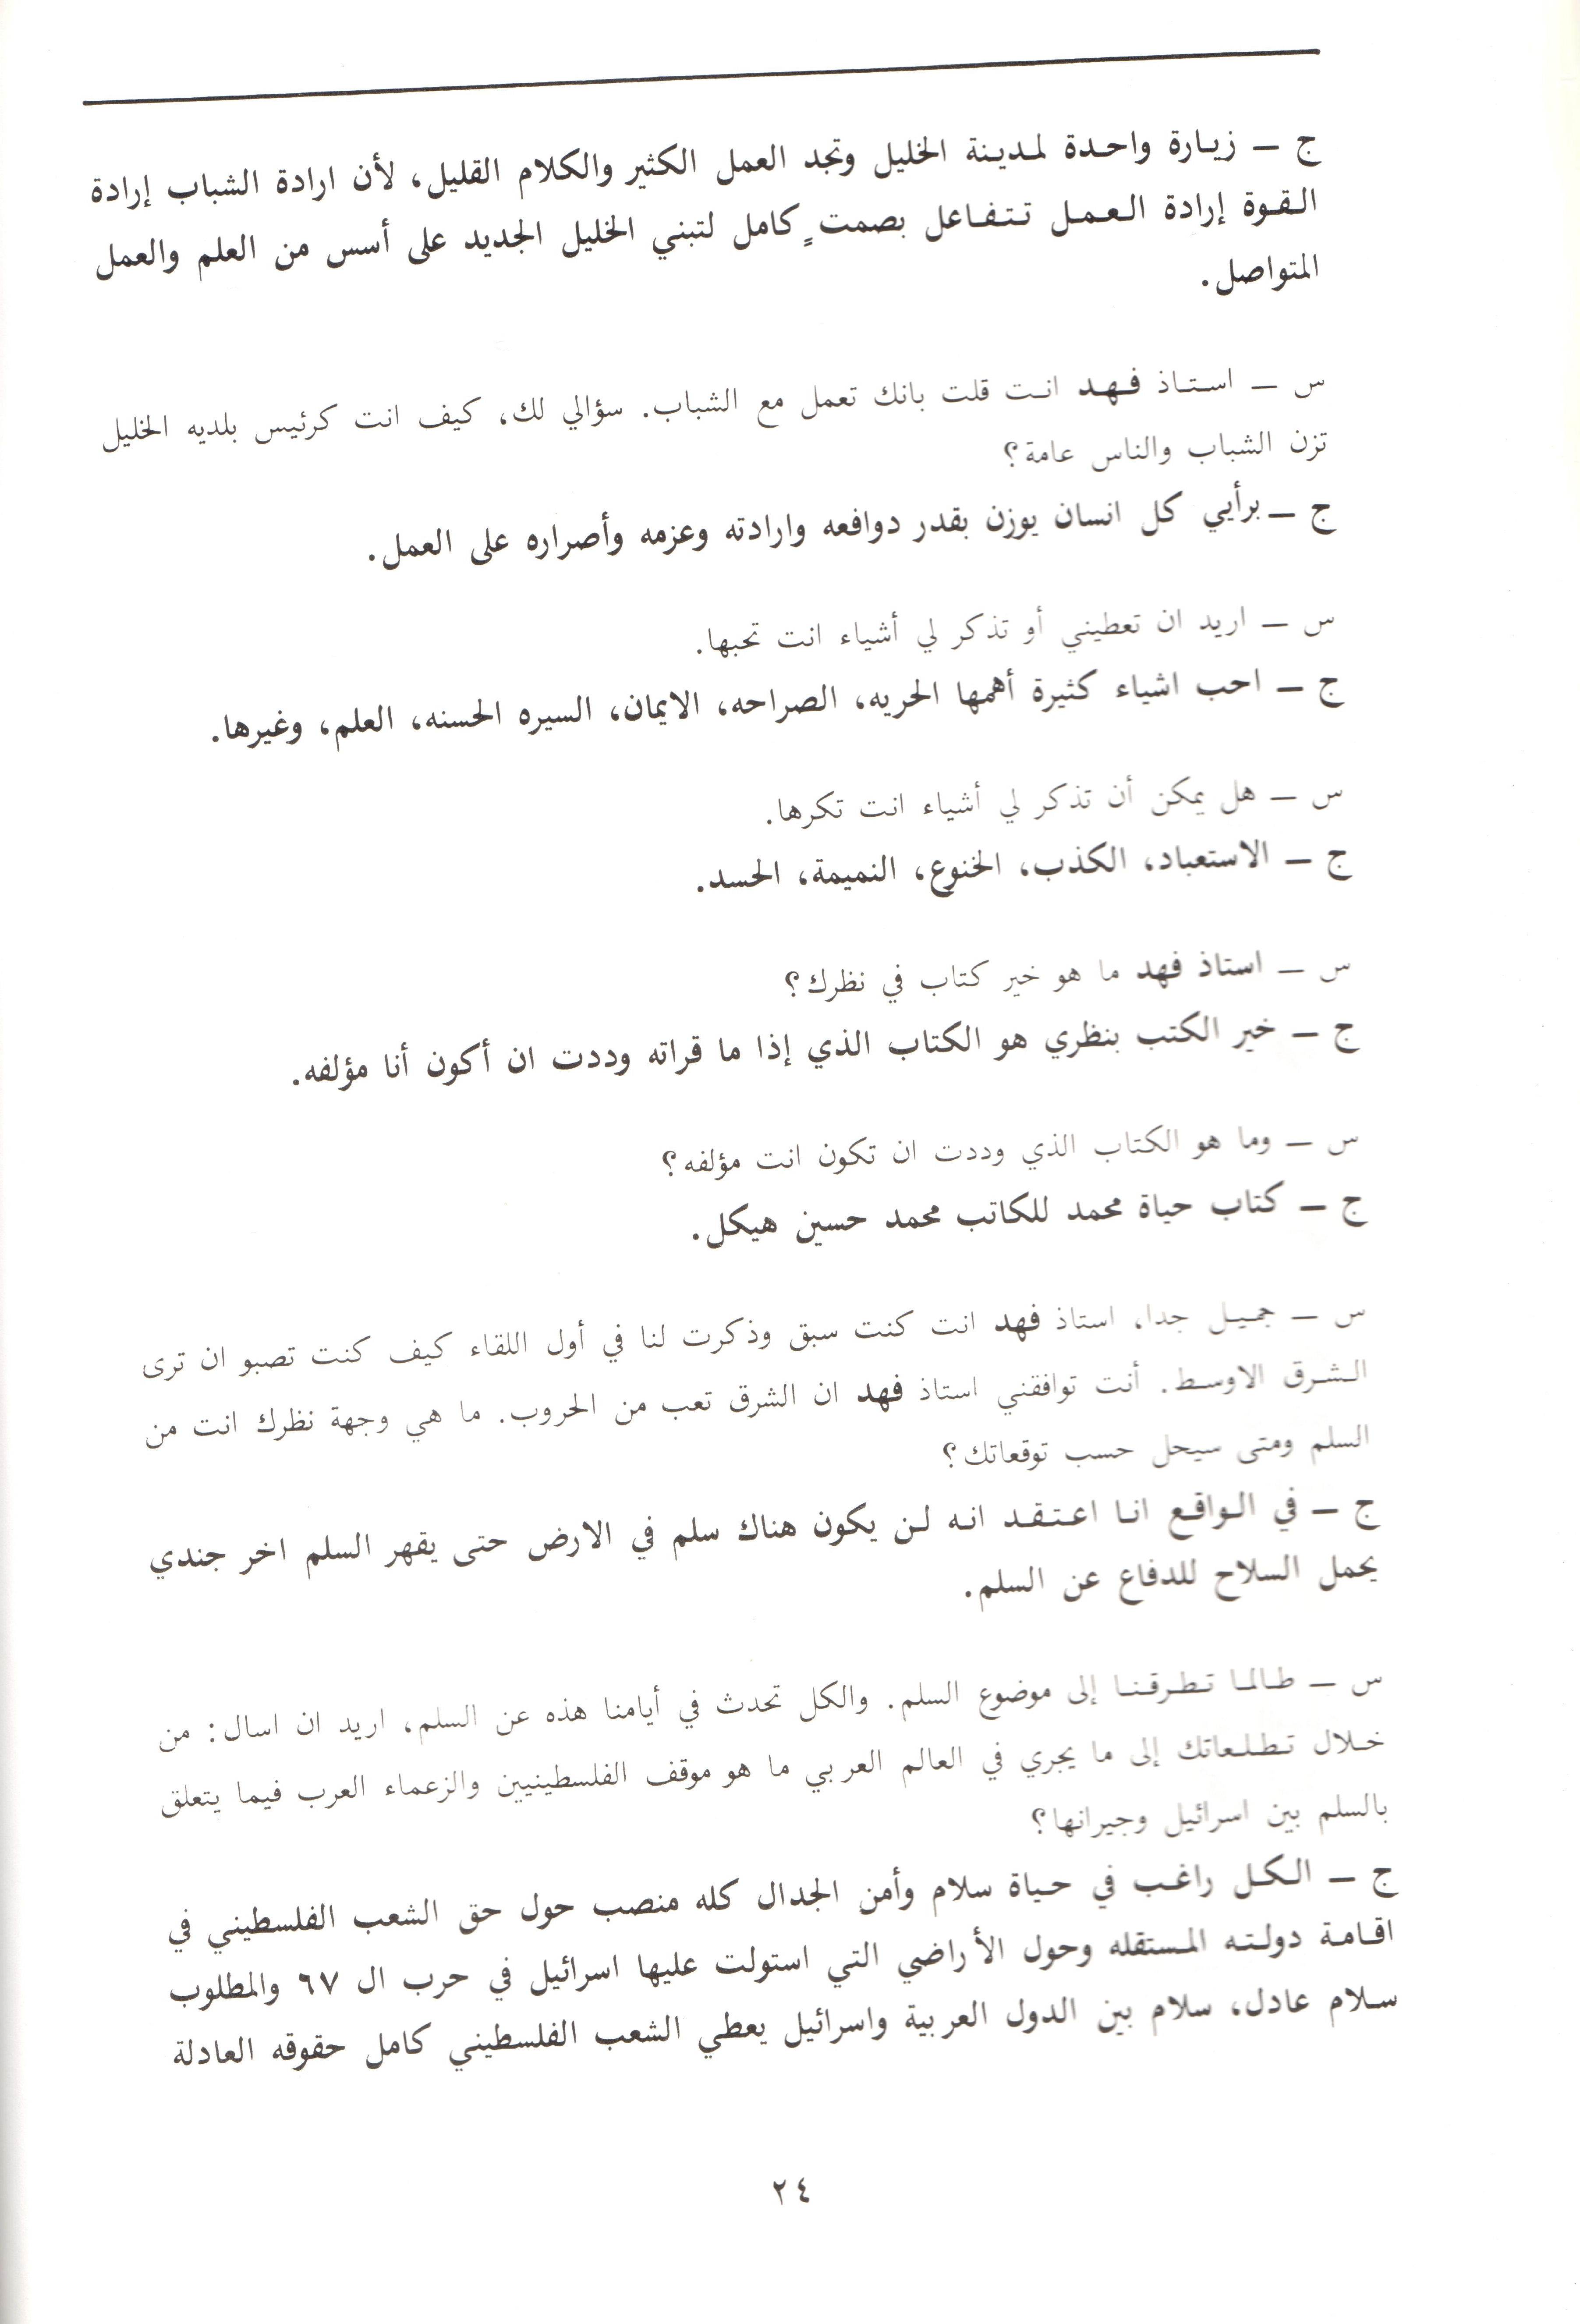 ج – زيارة واحدة لمدينة الخليل وتجد العمل الكثير والكلام القليل، لأن ارادة الشباب إرادة
القوة إرادة العمل تتفاعل بصمتٍ كامل لتبني الخليل الجديد على أسس من العلم والعمل
المتواصل.
س – استاذ فهد انت قلت بانك تعمل مع الشباب. سؤالي لك، كيف انت كرئيس بلديه الخليل
تزن الشباب والناس عامة؟
ج – برأيي كل انسان يوزن بقدر دوافعه وارادته وعزمه وأصراره على العمل.
س – اريد ان تعطيني أو تذكر لي أشياء انت تحبها.
ج – احب اشياء كثيرة أهمها الحريه، الصراحه، الايمان، السيره الحسنه، العلم، وغيرها.
س – هل يمكن أن تذكر لي أشياء انت تكرها.
ج – الاستعباد، الكذب، الخنوع، النميمة، الحسد.
س – استاذ فهد ما هو خير كتاب في نظرك؟
ج – خير الكتب بنظري هو الكتاب الذي إذا ما قراته وددت ان أكون أنا مؤلفه.
س – وما هو الكتاب الذي وددت ان تكون انت مؤلفه؟
ج – كتاب حياة محمد للكاتب محمد حسين هيكل.
س – جميل جدا، استاذ فهد انت كنت سبق وذكرت لنا في أول اللقاء كيف كنت تصبو ان ترى
الشرق الاوسط. أنت توافقني استاذ فهد ان الشرق تعب من الحروب. ما هي وجهة نظرك انت من
السلم ومتى سيحل حسب توقعاتك؟
ج – في الواقع انا اعتقد انه لن يكون هناك سلم في الارض حتى يقهر السلم اخر جندي
يحمل السلاح للدفاع عن السلم.
س – طالما تطرقنا إلى موضوع السلم. والكل تحدث في أيامنا هذه عن السلم، اريد ان اسال: من
خلال تطلعاتك إلى ما يجري في العالم العربي ما هو موقف الفلسطينيين والزعماء العرب فيما يتعلق
بالسلم بين اسرائيل وجيرانها؟
ج – الكل راغب في حياة سلام وأمن الجدال كله منصب حول حق الشعب الفلسطيني في
اقامة دولته المستقله وحول الأراضي التي استولت عليها اسرائيل في حرب ال ٦٧ والمطلوب
سلام عادل، سلام بين الدول العربية واسرائيل يعطي الشعب الفلسطيني كامل حقوقه العادلة
٢٤